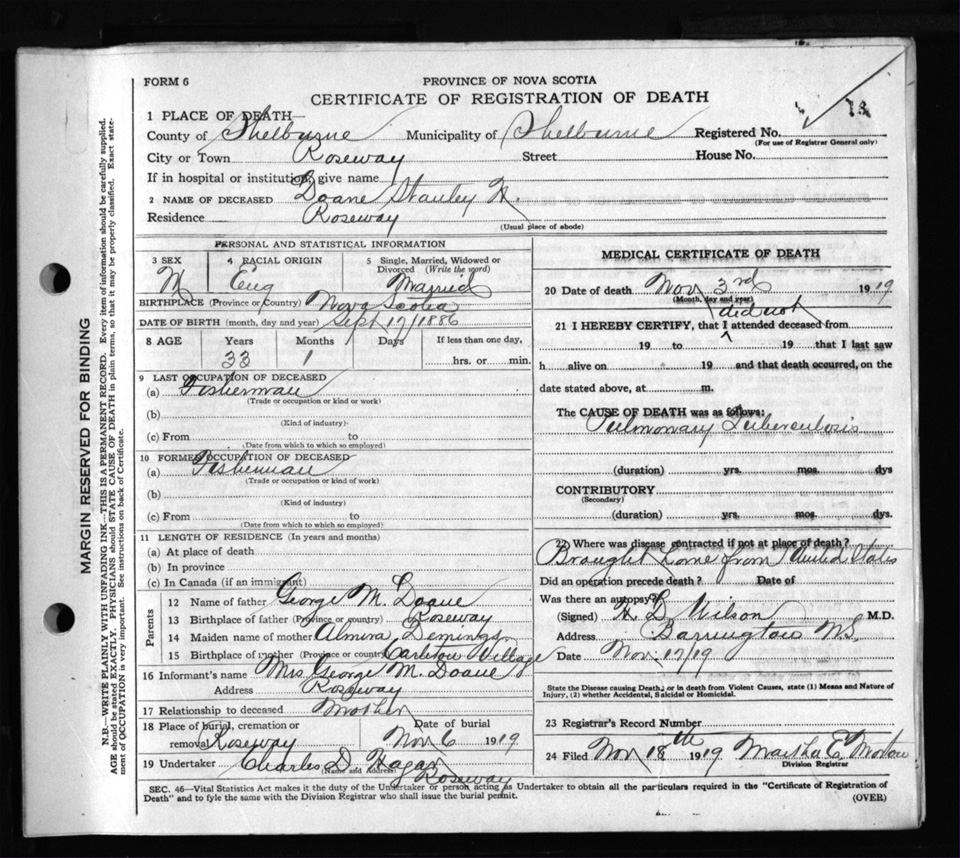 FORM 6
PROVINCE OF NOVA SCOTIA
CERTIFICATE OF REGISTRATION OF DEATH
1 PLACE OF DEATH
County of Shelburne Municipality of Shelburne Registered No.
(For use of Registrar General only)
City or Town Roseway Street House No.
If in hospital or institution, give name
2 NAME OF DECEASED Doane Stanley
Residence Roseway
(Usual place of abode)
PERSONAL AND STATISTICAL INFORMATION
3 SEX 4 RACIAL ORIGIN 5 Single, Married, Widowed or Divorced (Write the word)
M Eng Married
BIRTHPLACE (Province or Country) Nova Scotia
DATE OF BIRTH (month, day and year) Sept 17/1886
8 AGE Years Months Days If less than one day,
33 1 hrs. or min.
9 LAST OCCUPATION OF DECEASED
(a) Fisherman
(Trade or occupation or kind or work)
(b)
(Kind of industry)
(c) From to
(Date from which to which so employed)
10 FORMER OCCUPATION OF DECEASED
(a) Fisherman
(Trade or occupation or kind of work)
(b)
(Kind of industry)
(c) From to
(Date from which to which so employed)
11 LENGTH OF RESIDENCE (In years and months)
(a) At place of death
(b) In province
(c) In Canada (if an immigrant)
Parents
12 Name of father George M. Doane
13 Birthplace of father (Province or country) Roseway
14 Maiden name of mother Almira Demings
15 Birthplace of mother (Province or country) Carleton Village
16 Informant's name Mrs George M. Doane
Address Roseway
17 Relationship to deceased Mother
18 Place of burial, cremation or Date of burial
removal Roseway Nov 6 1919
19 Undertaker Charles D. Hagar
(Name and Address) Roseway
MEDICAL CERTIFICATE OF DEATH
20 Date of death Nov 3rd 1919
(Month, day and year)
did not
21 I HEREBY CERTIFY, that I attended deceased from
19 to 19 that I last saw
h alive on 19 and that death occurred, on the
date stated above, at m.
The CAUSE OF DEATH was as follows:
Pulmonary Tuberculosis
(duration) yrs. mos. dys
CONTRIBUTORY
(Secondary)
(duration) yrs. mos. dys
22 Where was disease contracted if not at place of death?
Brought home from United States
Did an operation precede death? Date of
Was there an autopsy?
(Signed) Wilson M.D.
Address Barrington N.S.
Date Nov. 17/19
State the Disease causing Death, or in death from Violent Causes, state (1) Means and Nature of
Injury, (2) whether Accidental, Suicidal or Homicidal.
23 Registrar's Record Number
24 Filed Nov 18th 1919 Martha E. Morton
Division Registrar
SEC. 46—Vital Statistics Act makes it the duty of the Undertaker or person acting as Undertaker to obtain all the particulars required in the "Certificate of Registration of
Death" and to fyle the same with the Division Registrar who shall issue the burial permit.
(OVER)
MARGIN RESERVED FOR BINDING
N.B.—WRITE PLAINLY WITH UNFADING INK—THIS IS A PERMANENT RECORD. Every item of information should be carefully supplied.
AGE should be stated EXACTLY. PHYSICIANS should STATE CAUSE OF DEATH in plain terms, so that it may be properly classified. Exact statement
of OCCUPATION is very important. See instructions on back of Certificate.